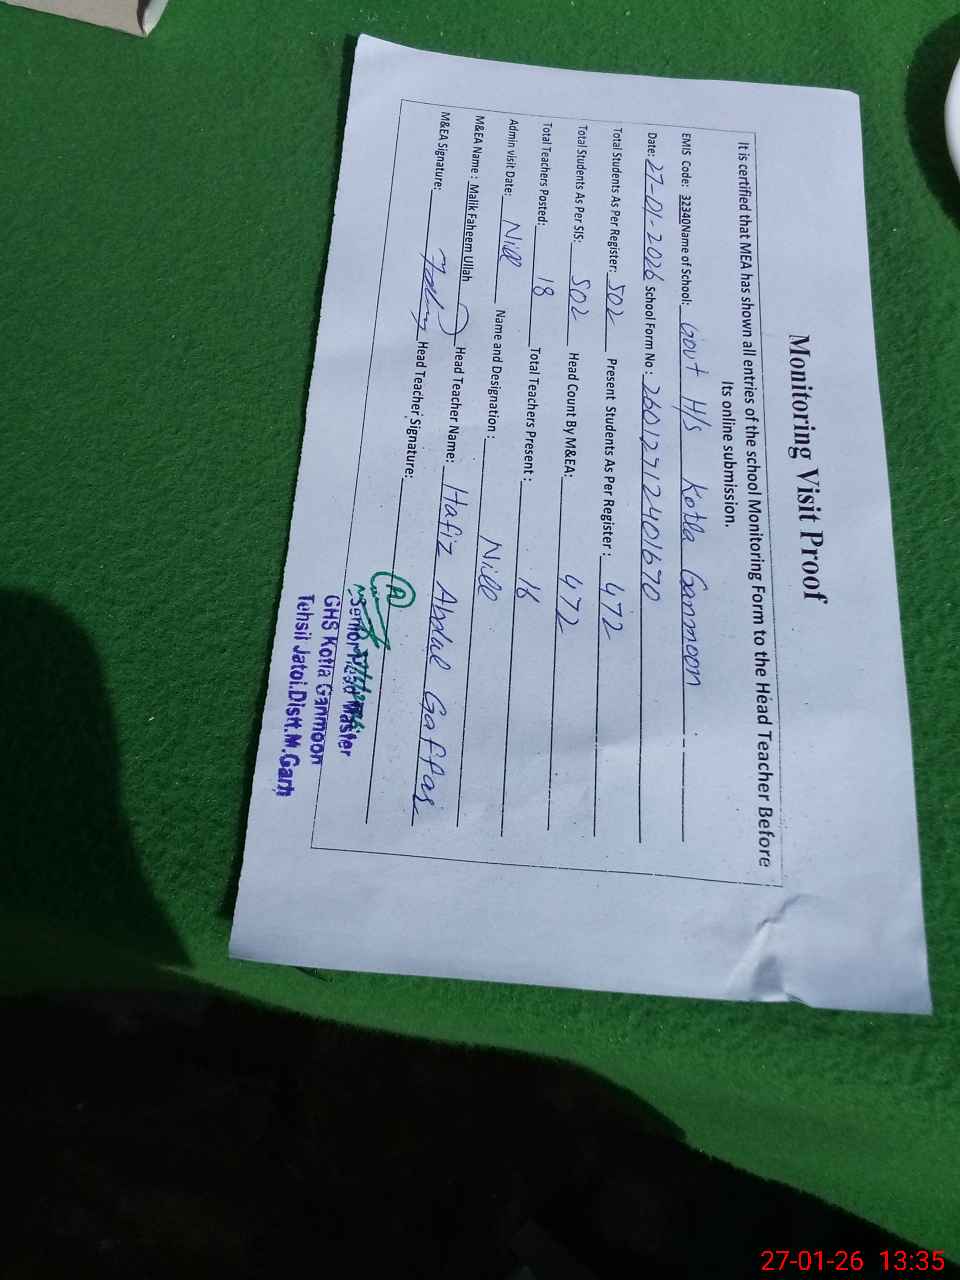 Monitoring Visit Proof
It is certified that MEA has shown all entries of the school Monitoring Form to the Head Teacher Before
Its online submission.
EMIS Code: 32340 Name of School: Govt H/S Kotla Ganmoon
Date: 27-01-2026 School Form No: 26012712401670
Total Students As Per Register: 502 Present Students As Per Register: 472
Total Students As Per SIS: 502 Head Count By M&EA: 472
Total Teachers Posted: 18 Total Teachers Present: 18
Admin visit Date: Nill Name and Designation: Nill
M&EA Name: Malik Faheem Ullah Head Teacher Name: Hafiz Abdul Gaffar
M&EA Signature: Head Teacher Signature:
Senior Head Master
GHS Kotla Ganmoon
Tehsil Jatoi.Distt.M.Garh
27-01-26 13:35